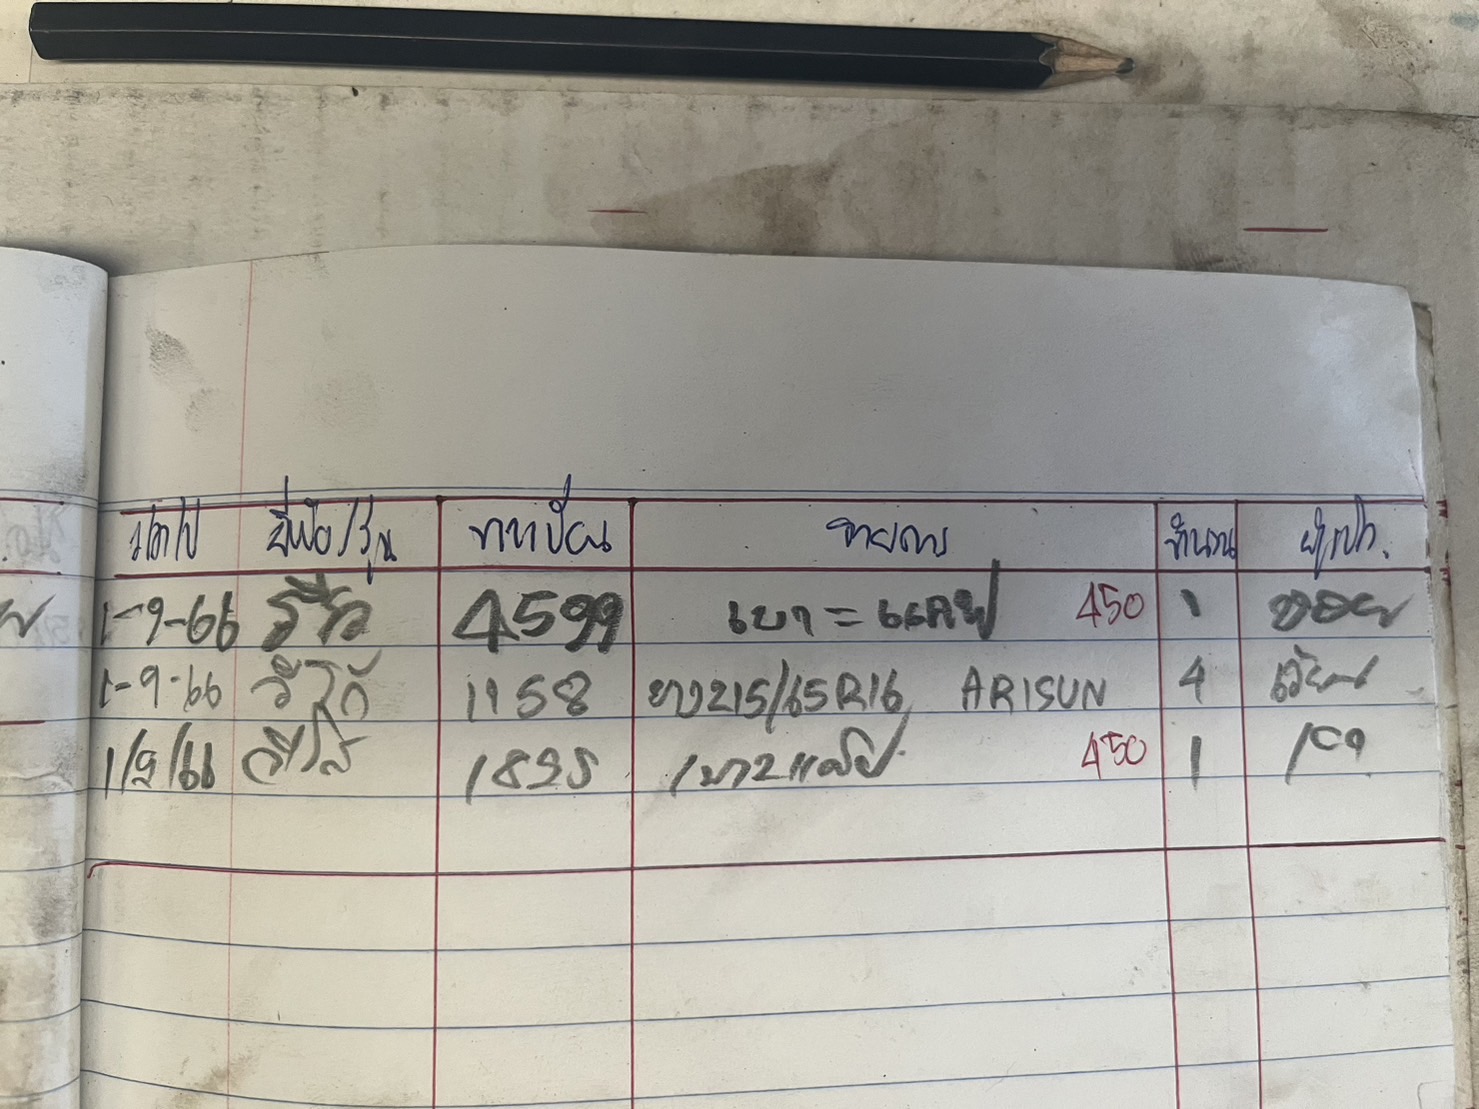 ว/ด/ป ยี่ห้อ/รุ่น ทะเบียน รายการ จำนวน ผู้เบิก.
1-9-66 รีโว่ 4599 เบา = 450 1
1-9-66 วีโก้ 1158 ยาง 215/65R16 ARISUN 4
1/9/66 วีโก้ 1895 เบา 450 1 เจ